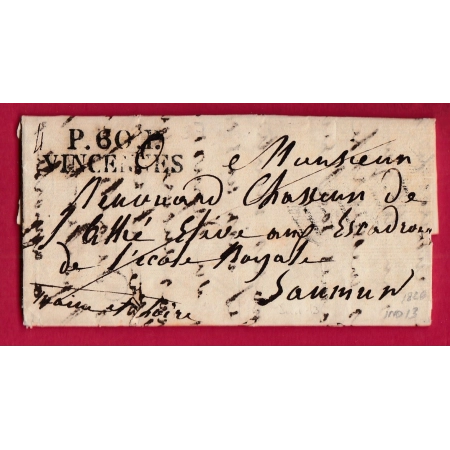 P.60.P.
VINCENNES
a Monsieur
Renouard Chasseur de
l'Allié Elève aux Escadron
de l'école Royale
Saumur
Maine et Loire
1826
IND 13